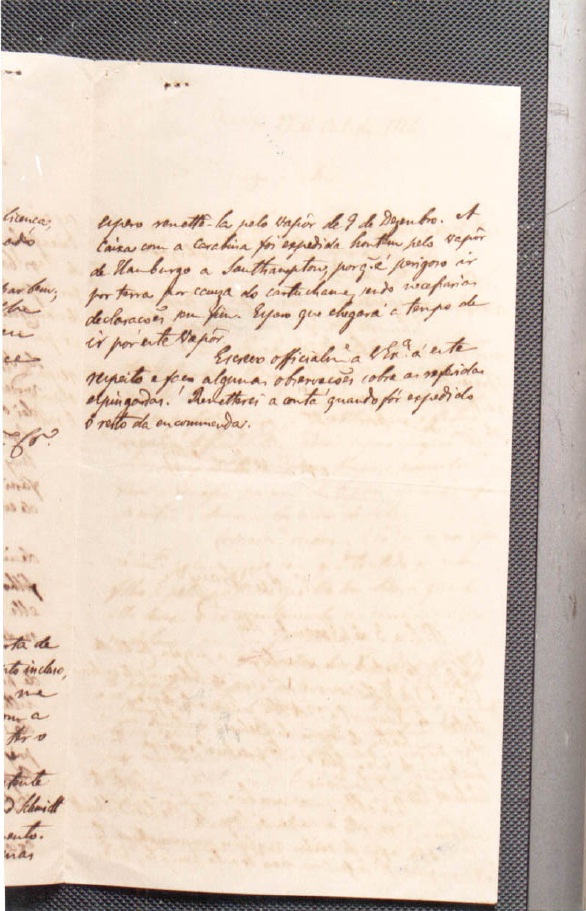 licença,
espero remettê-la pelo vapôr de 9 de Dezembro. A
caixa com a carabina foi expedida hontem pelo vapôr
de Hamburgo a Southampton, porq. é perigoso ir
por terra por causa do cartuchame, sendo necessarias
declarações sem fim. Espero que chegará a tempo de
ir por este vapôr.
Escrevo officialm.e a V Ex.a á este
respeito e faço algumas observações sobre as referidas
espingardas. Remetterei a conta quando fôr expedido
o resto da encommenda.
ta de
to incluso,
me
om a
tante
Schmidt
mento.